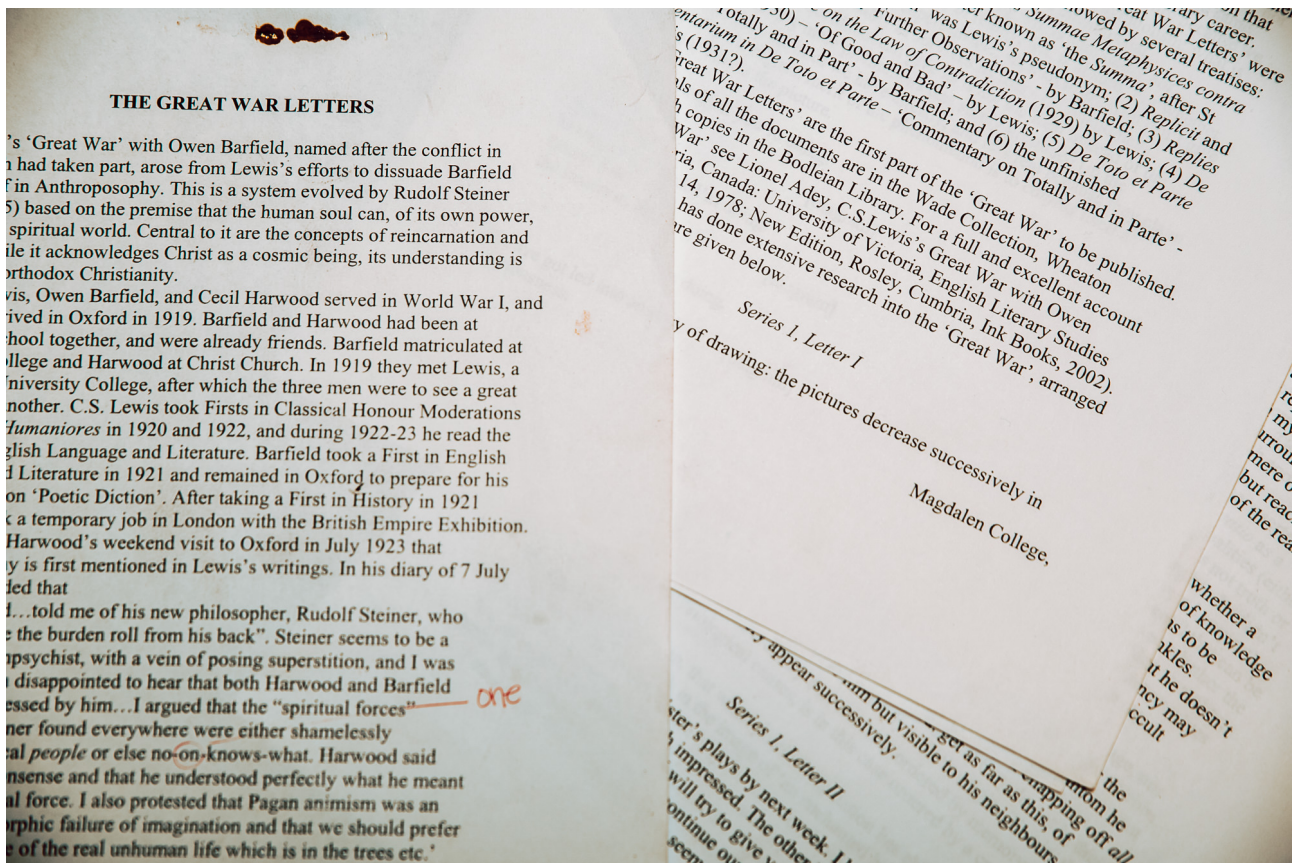 THE GREAT WAR LETTERS
's 'Great War' with Owen Barfield, named after the conflict in
had taken part, arose from Lewis's efforts to dissuade Barfield
in Anthroposophy. This is a system evolved by Rudolf Steiner
5) based on the premise that the human soul can, of its own power,
spiritual world. Central to it are the concepts of reincarnation and
ile it acknowledges Christ as a cosmic being, its understanding is
orthodox Christianity.
vis, Owen Barfield, and Cecil Harwood served in World War I, and
rived in Oxford in 1919. Barfield and Harwood had been at
hool together, and were already friends. Barfield matriculated at
ollege and Harwood at Christ Church. In 1919 they met Lewis, a
University College, after which the three men were to see a great
nother. C.S. Lewis took Firsts in Classical Honour Moderations
Humaniores in 1920 and 1922, and during 1922-23 he read the
glish Language and Literature. Barfield took a First in English
d Literature in 1921 and remained in Oxford to prepare for his
on 'Poetic Diction'. After taking a First in History in 1921
k a temporary job in London with the British Empire Exhibition.
Harwood's weekend visit to Oxford in July 1923 that
y is first mentioned in Lewis's writings. In his diary of 7 July
ded that
d…told me of his new philosopher, Rudolf Steiner, who
e the burden roll from his back". Steiner seems to be a
npsychist, with a vein of posing superstition, and I was
disappointed to hear that both Harwood and Barfield
essed by him…I argued that the "spiritual forces"
one
ner found everywhere were either shamelessly
cal people or else no-on-knows-what. Harwood said
nsense and that he understood perfectly what he meant
al force. I also protested that Pagan animism was an
orphic failure of imagination and that we should prefer
e of the real unhuman life which is in the trees etc.'
on that
ary career.
reat War Letters' were
owed by several treatises:
er known as 'the Summa', after St
Summae Metaphysices contra
was Lewis's pseudonym; (2) Replicit and
Further Observations' - by Barfield; (3) Replies
on the Law of Contradiction (1929) by Lewis; (4) De
30) – 'Of Good and Bad' – by Lewis; (5) De Toto et Parte
Totally and in Part' - by Barfield; and (6) the unfinished
entarium in De Toto et Parte – 'Commentary on Totally and in Parte' -
s (1931?).
reat War Letters' are the first part of the 'Great War' to be published.
ls of all the documents are in the Wade Collection, Wheaton
h copies in the Bodleian Library. For a full and excellent account
War' see Lionel Adey, C.S.Lewis's Great War with Owen
ria, Canada: University of Victoria, English Literary Studies
14, 1978; New Edition, Rosley, Cumbria, Ink Books, 2002).
has done extensive research into the 'Great War', arranged
re given below.
Series 1, Letter I
y of drawing: the pictures decrease successively in
Magdalen College,
my
mere
but reac
of the rea
whether a
of knowledge
ns to be
nkles.
t he doesn't
ncy may
ccult
y appear successively.
him but visible to his neighbours
get as far as this, of
apping off all
whom he
the
Series I, Letter II
ster's plays by next week.
impressed. The other
will try to give
ontinue ou
seem